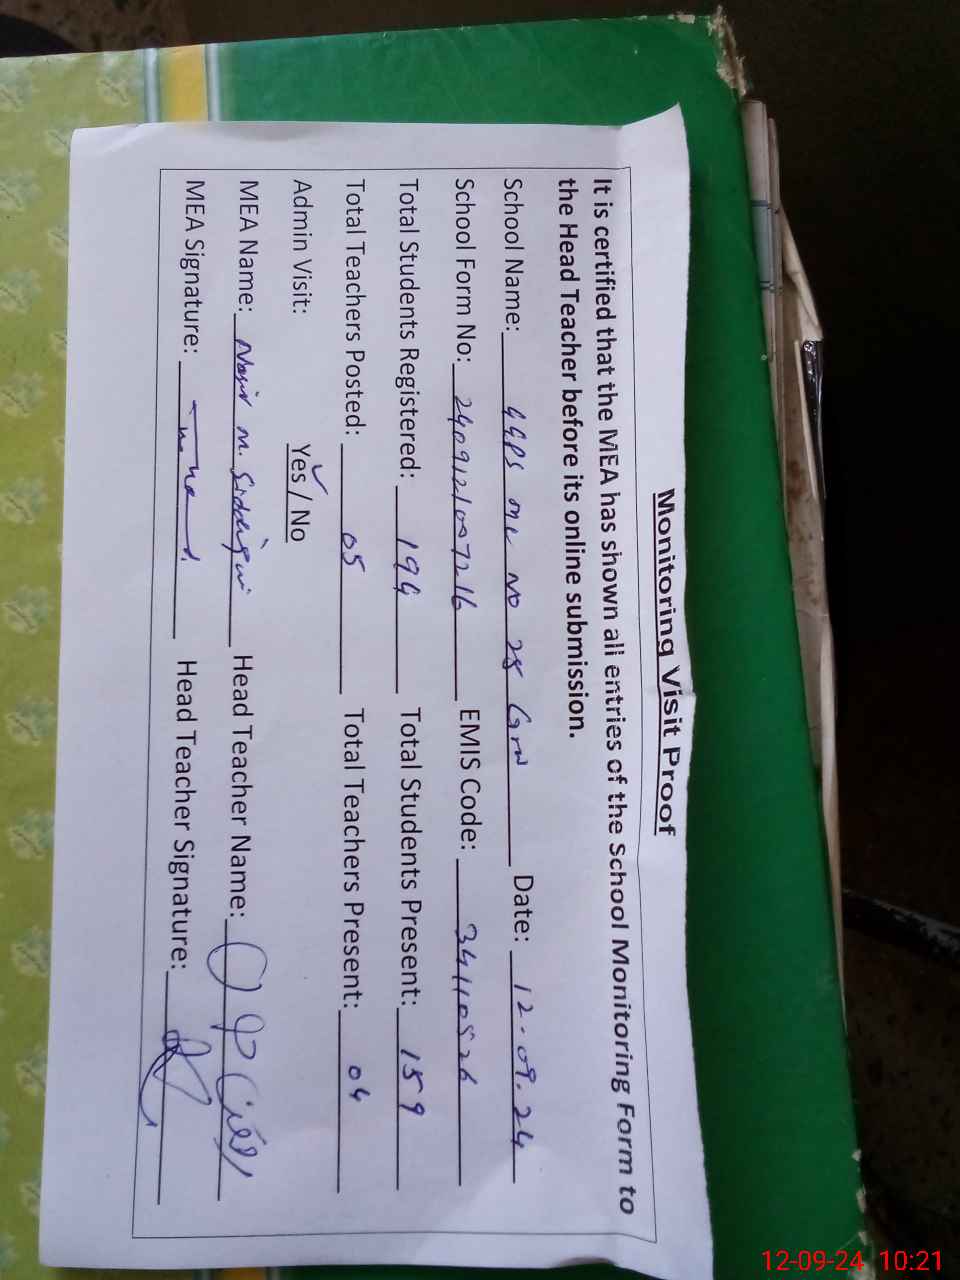 Monitoring Visit Proof
It is certified that the MEA has shown all entries of the School Monitoring Form to
the Head Teacher before its online submission.
School Name: GGPS MC NO 28 Grw Date: 12.09.24
School Form No: EMIS Code: 34110526
Total Students Registered: 194 Total Students Present: 159
Total Teachers Posted: 05 Total Teachers Present: 04
Admin Visit: Yes / No
MEA Name: Nasir M. Siddiqui Head Teacher Name:
MEA Signature: Head Teacher Signature:
12-09-24 10:21